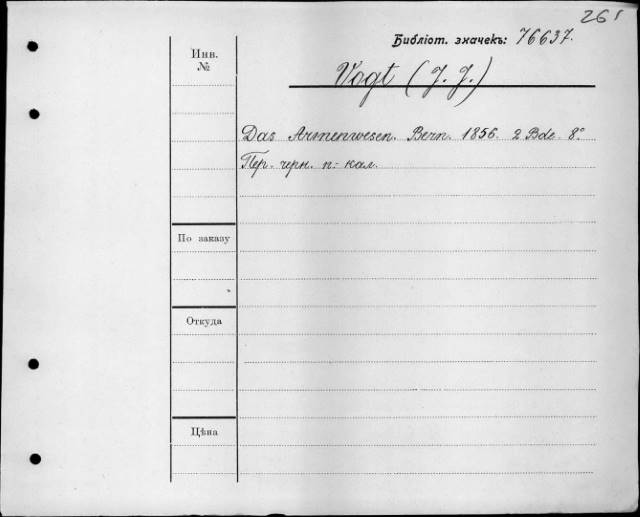 261
Библіот. значекъ: 76637.
Инв.
№
Vogt (J. J.)
Das Armenwesen. Bern. 1856. 2 Bde. 8°
Пер. черн. п.- кал.
По заказу
Откуда
Цѣна